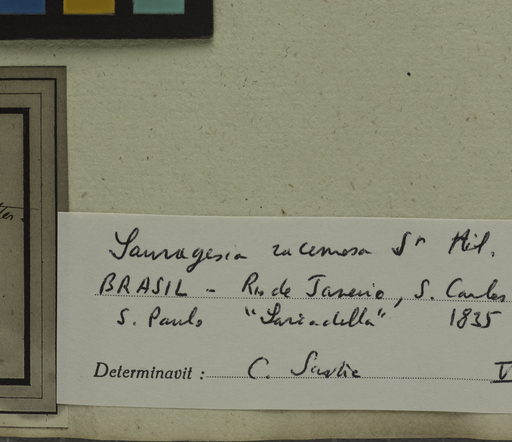 Sauvagesia racemosa St Hil.
BRASIL - Rio de Janeiro, S. Carlos
S. Paulo "Lavradella" 1835
Determinavit : C. Sastre